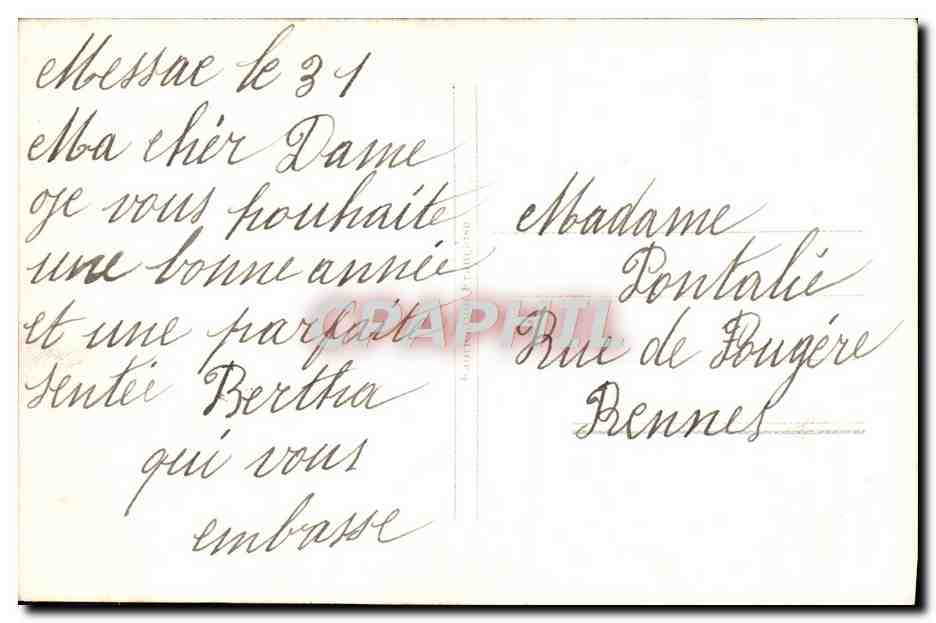 Messac le 31
Ma chér Dame
je vous souhaite
une bonne année
et une parfait
sentée Bertha
qui vous
embasse
Madame
Pontalié
Rue de Fougére
Rennes
CPAPHIL